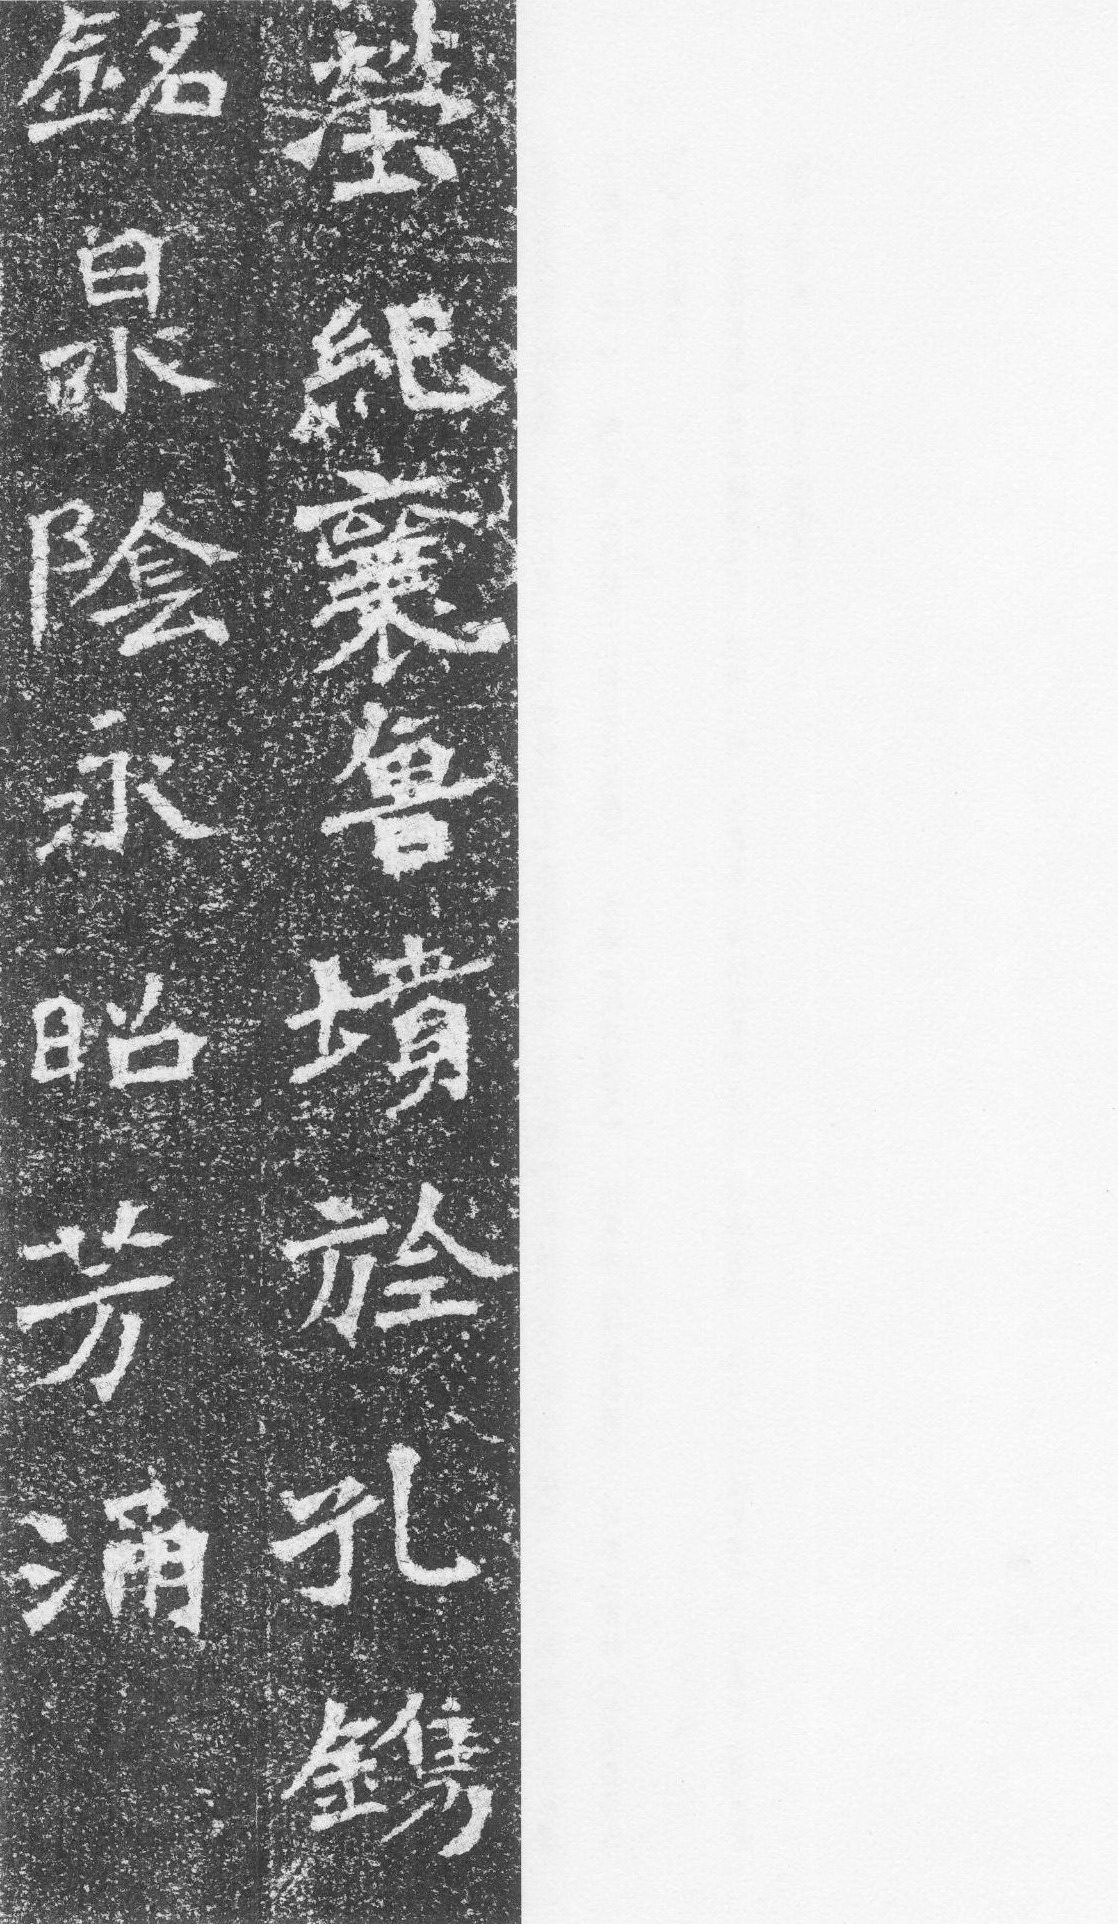 塋紀襄魯墳於孔鐫
銘泉陰永昭芳涌